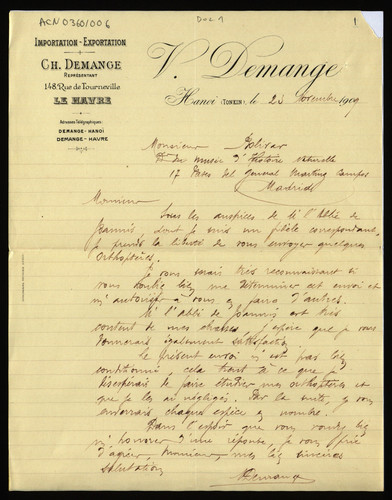 ACN0360/006
Doc 1
1
IMPORTATION-EXPORTATION
CH. DEMANGE
REPRÉSENTANT
148, Rue de Tourneville
LE HAVRE
Adresses Télégraphiques:
DEMANGE-HANOÏ
DEMANGE-HAVRE
V. Demange
Hanoï (TONKIN), le 23 Novembre 1909
Monsieur Bolivar
du musée d'histoire naturelle
17 Paseo del General Martinez Campos
Madrid
Monsieur
Sous les auspices de M. l'Abbé de
Joannis, dont je suis un fidèle correspondant,
je prends la liberté de vous envoyer quelques
orthoptères.
Je vous serais très reconnaissant si
vous vouliez bien me déterminer cet envoi et
m'autoriser à vous en faire d'autres.
M. l'abbé de Joannis est très
content de mes chasses, j'espère que je vous
donnerais également satisfaction
Le présent envoi n'est pas bien
conditionné, cela tient à ce que je
désespérais de faire étudier mes orthoptères et
que je les ai négligés. Par la suite, je vous
enverrais chaque espèce en nombre.
Dans l'espoir que vous voudrez bien
m'honorer d'une réponse, je vous prie
d'agréer, Monsieur mes bien sincères
salutations
VDemange